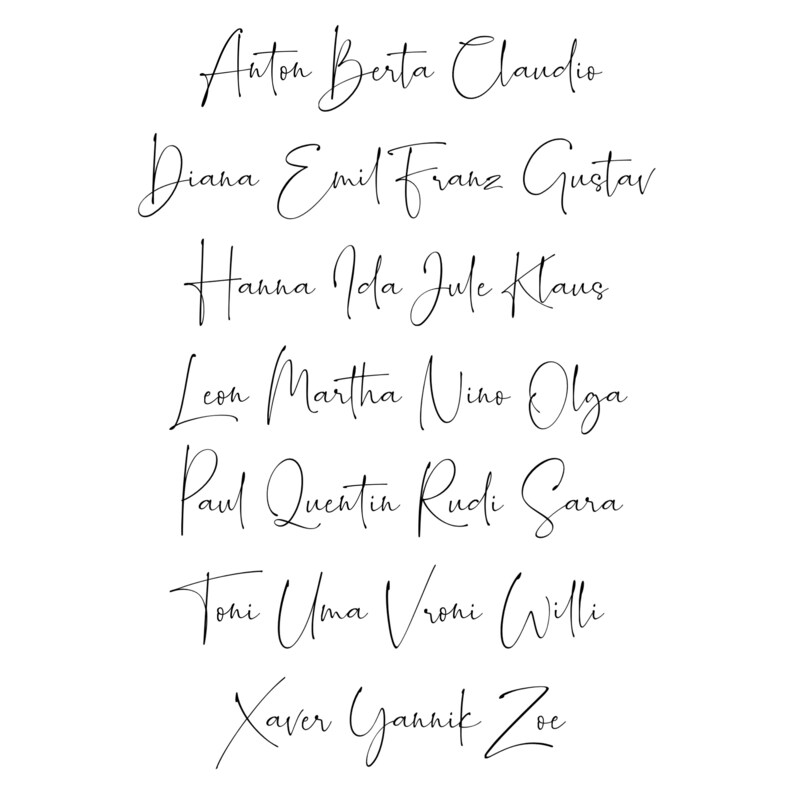 Anton Berta Claudio
Diana Emil Franz Gustav
Hanna Ida Jule Klaus
Leon Martha Nino Olga
Paul Quentin Rudi Sara
Toni Uma Vroni Willi
Xaver Yannik Zoe